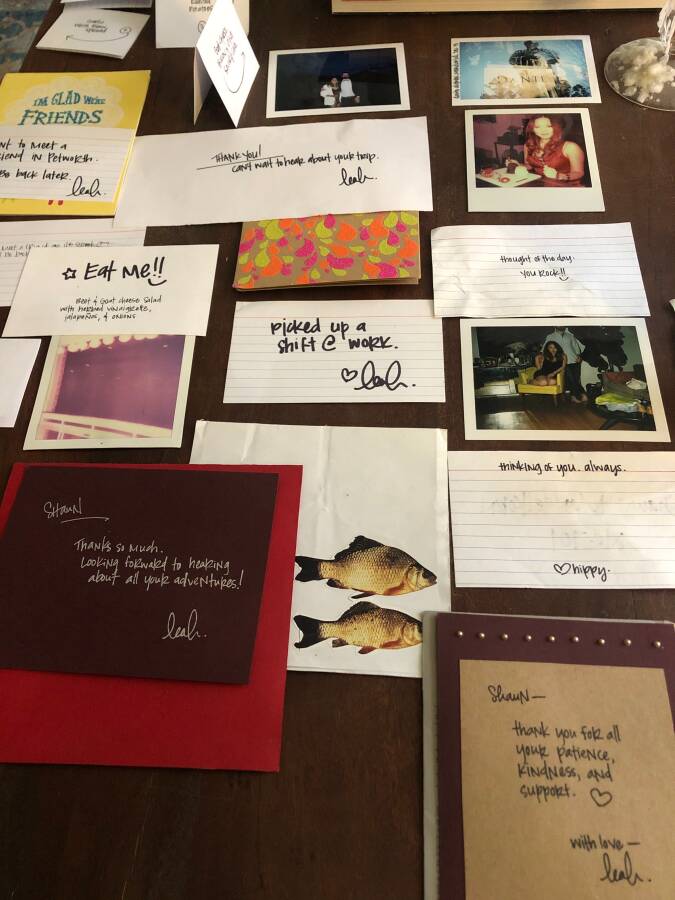 I'M GLAD WE'RE
FRIENDS
nt to meet a
iend in Petworth.
Be back later.
leah.
THANK YOU!
can't wait to hear about your trip.
leah.
thought of the day.
you rock!!
☆ Eat Me!!
Beet & goat cheese salad
with herbed vinaigrette,
jalapeños, & onions
picked up a
shift @ work.
♡ leah.
thinking of you. always.
♡ hippy.
Shaun
Thanks so much.
Looking forward to hearing
about all your adventures!
leah.
Shaun—
thank you for all
your patience,
kindness, and
support. ♡
with love—
leah.